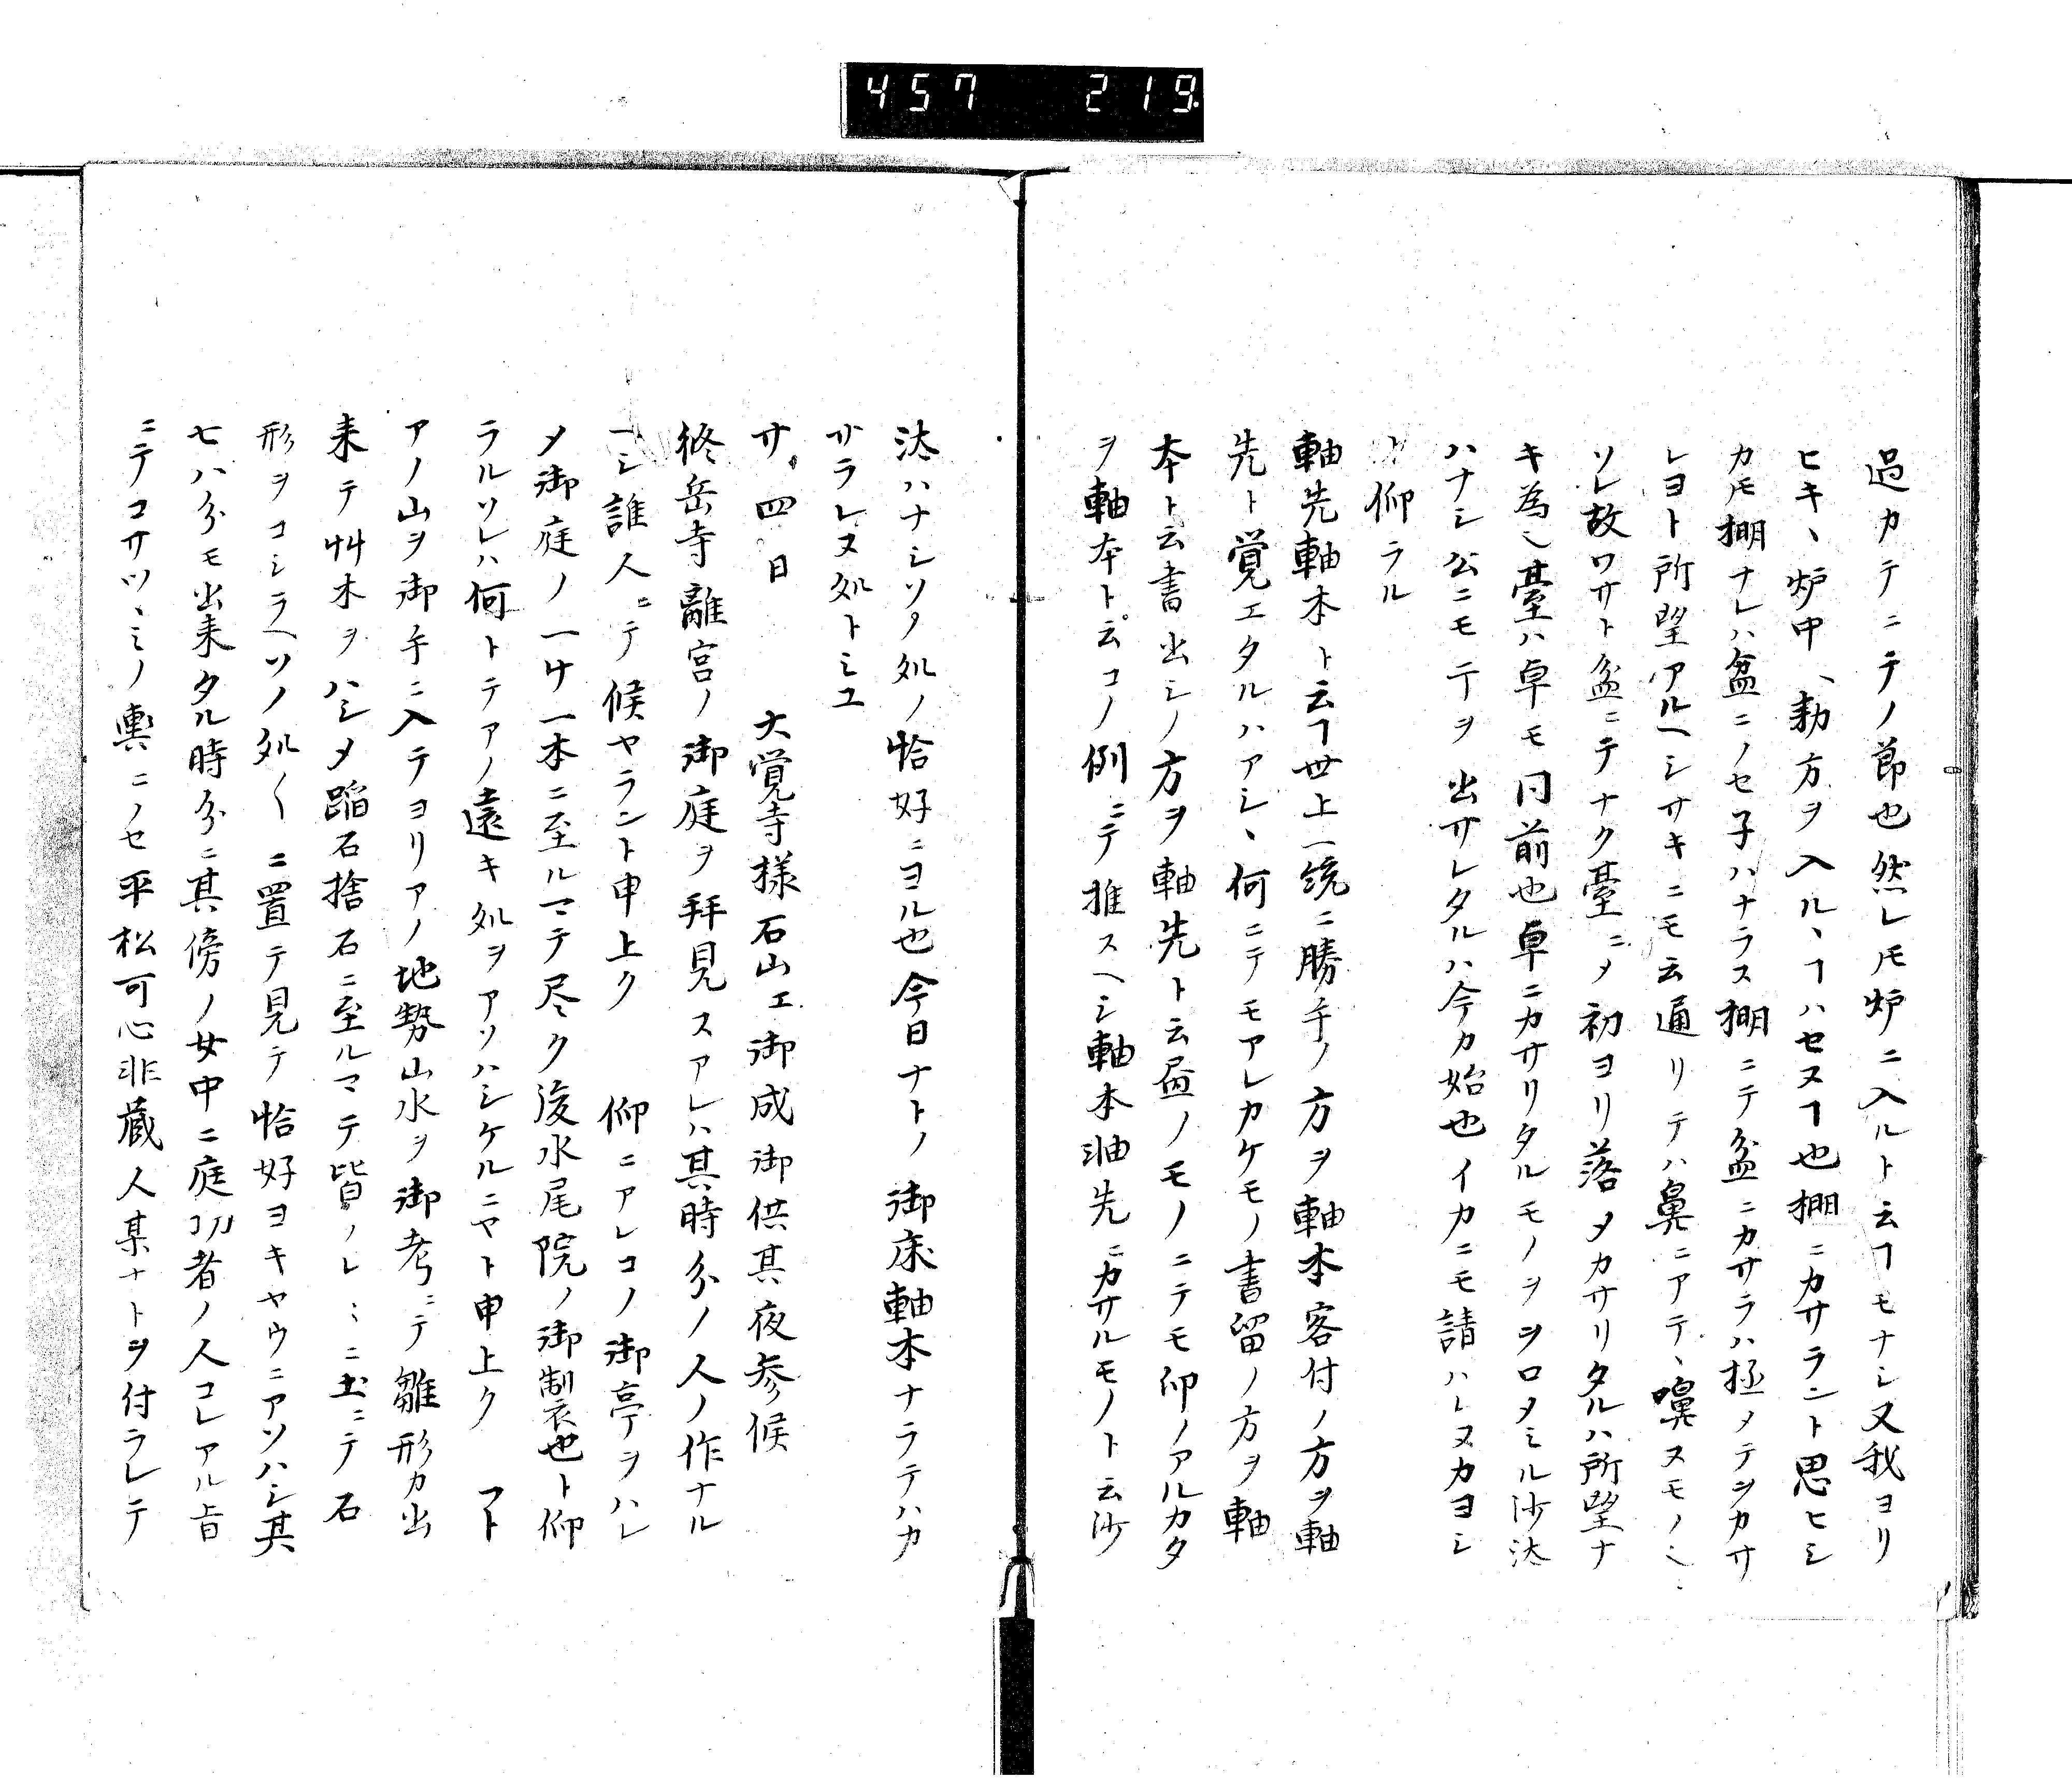 457 219
過カテニテノ節也然レ𪜈炉ニ入ルト云ヿモナシ又我ヨリ
ヒキヽ炉中ヽ勅方ヲ入ルヽヿハセヌヿ也棚ニカサラント思ヒシ
カ𪜈棚ナレハ盆ニノセ子ハナラス棚ニテ盆ニカサラハ極メテヲカサ
レヨト所望アルヘシサキニモ云通リテハ鼻ニアテヽ嗅スモノ
ソレ故ワサト盆ニテナク臺ニメ初ヨリ落メカサリタルハ所望ナ
キ為也臺ハ卓モ同前也卓ニカサリタルモノヲヲロタミル沙汰
ハナシ公ニモ亍ヲ出サレタルハ今カ始也イカニモ請ハレヌカヨシ
ト仰ラル
軸先軸本ト云ヿ世上一統ニ勝手ノ方ヲ軸本客付ノ方ヲ軸
先ト覚エタルハアシヽ何ニテモアレカケモノ書留ノ方ヲ軸
本ト云書出シノ方ヲ軸先ト云畳ノモノニテモ仰ノアルカタ
ヲ軸本ト云コノ例ニテ推スヘシ軸本軸先ニカサルモノト云沙
汰ハナシソノ処ノ恰好ニヨル也今日ナトノ御床軸本ナラテハカ
サラレヌ処トミユ
廿四日 大覚寺様石山エ御成御供其夜参候
終岳寺離宮ノ御庭ヲ拝見スアレハ其時分ノ人ノ作ナル
ヘシ誰人ニテ候ヤラント申上ク 仰ニアレコノ御亭ヲハレ
メ御庭ノ一ケ一木ニ至ルマテ尽ク後水尾院ノ御製也ト仰
ラルソレハ何トテアノ遠キ処ヲアソハシケルニヤト申上ク ヿト
アノ山ヲ御手ニ入テヨリアノ地勢山水ヲ御考ニテ雛形カ出
来テ艸木ヲハシメ蹈石捨石ニ至ルマテ皆ノレニ土ニテ石
形ヲコシラヘソノ処〱ニ置テ見テ恰好ヨキヤウニアソハシ其
七ハ分モ出来タル時分ニ其傍ノ女中ニ庭功者ノ人コレアル旨
ニテコサツヽミノ輿ニノセ平松可心非蔵人某ナトヲ付ラレテ